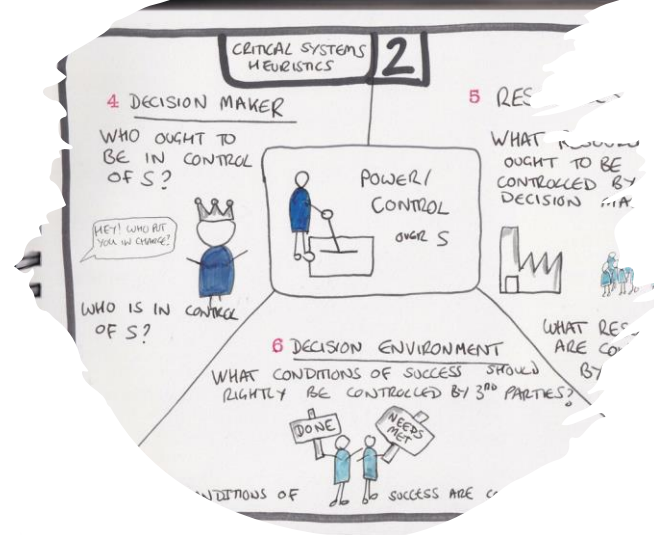 CRITICAL SYSTEMS
HEURISTICS
2
4 DECISION MAKER
WHO OUGHT TO
BE IN CONTROL
OF S?
HEY! WHO PUT
YOU IN CHARGE?
WHO IS IN CONTROL
OF S?
POWER/
CONTROL
OVER S
5
WHAT
OUGHT TO BE
CONTROLLED BY
DECISION
WHAT
ARE
BY
6 DECISION ENVIRONMENT
WHAT CONDITIONS OF SUCCESS SHOULD
RIGHTLY BE CONTROLLED BY 3RD PARTIES?
DONE
NEEDS
MET
OF SUCCESS ARE